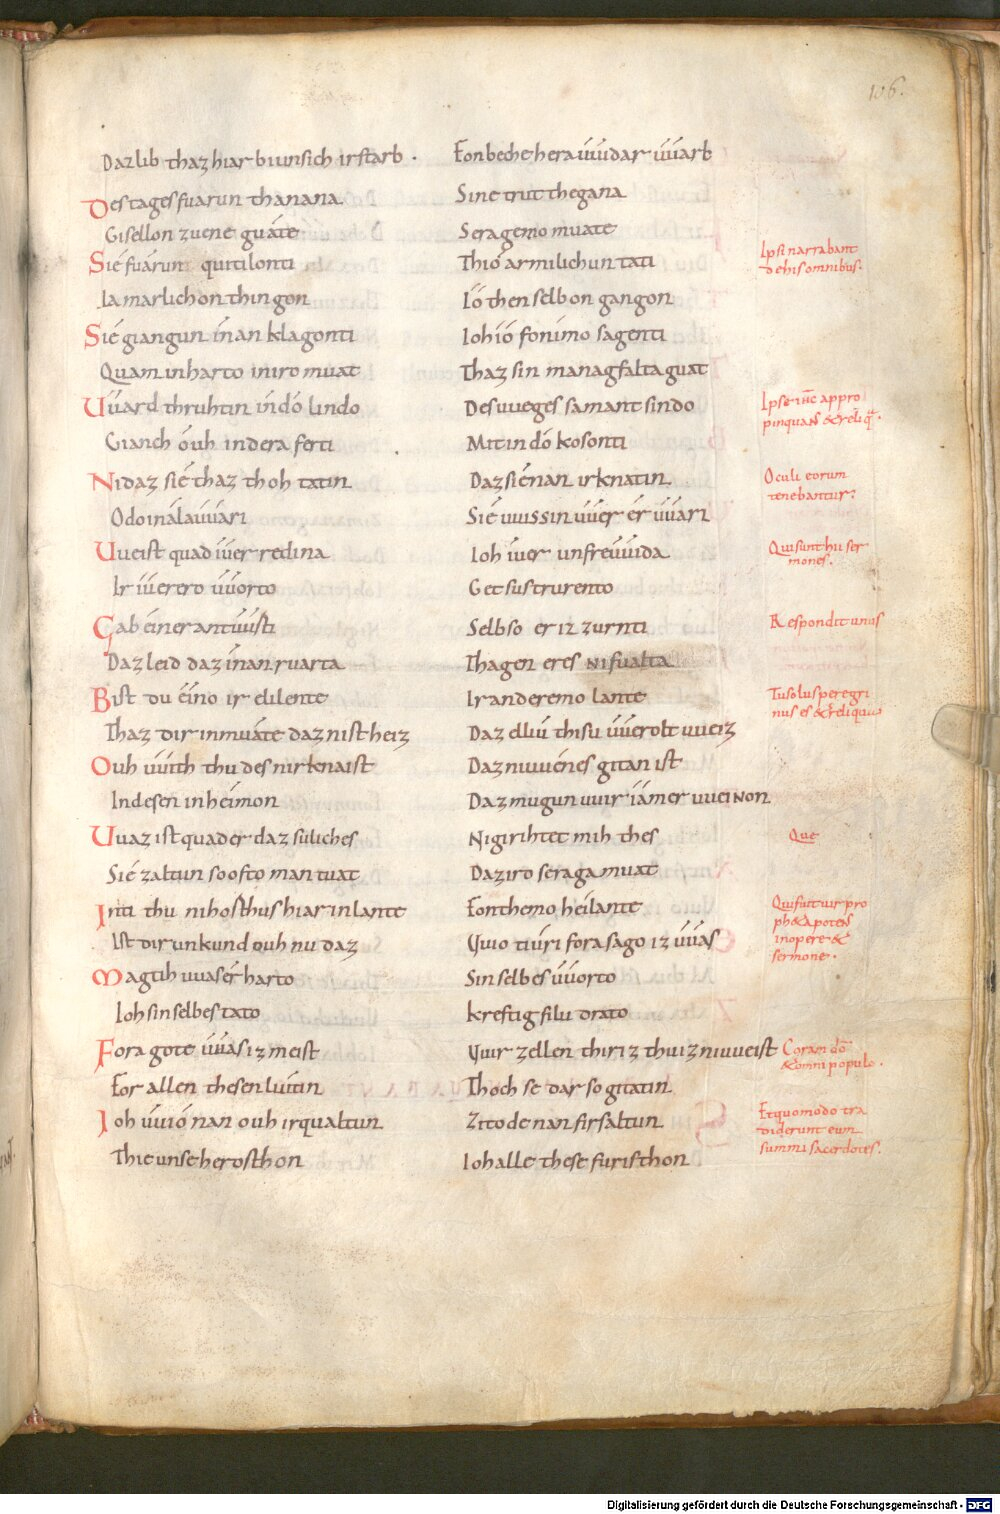 106.
Daz lib thaz hiar bi unsich irstarb. Fon beche hera uuidar uuarb
Des tages fuarun thanana Sine trut thegana
Gisellon zuene guate Seragemo muate
Sie fuarun quitilonti Thio armilichun tati
Iamarlichon thingon Io then selbon gangon
Sie giangun inan klagonti Ioh io fon imo sagenti
Quam in harto in iro muat Thaz sin managfalta guat
Uuard thruhtin in do lindo Des uueges samant sindo
Giarich ouh in dera ferti Mit in do kosonti
Nidaz sie thaz thoh tatin Daz sie nan irknatin
Odo in alauuari Sie uuissin uuer er uuari
Uueist quad iuuer redina Ioh iuuer unfreuuida
Ir iuuerero uuorto Get sus trurento
Gab einer antuuurti Selb so er iz zurnti
Daz leid daz inan ruarta Thagen eres ni fualta
Bist du eino ir elilente Ir anderemo lante
Thaz dir in muate daz nist heiz Daz elliu thisu uuerolt uueiz
Ouh uuiht thu des nirknaist Daz niuuenes gitan ist
In desen inheimon Daz mugun uuir iamer uueinon
Uuaz ist quad er daz suliches Nigirihtet mih thes
Sie zaltun so ofto man tuat Daz iro seraga muat
Inti thu ni hortus hiar in lante Fon themo heilante
Ist dir unkund ouh nu daz Quio tiuri fora sago iz uuas
Magtih uuas er harto Sin selbes uuorto
Ioh sin selbes tato Kreftig filu drato
Fora gote uuas iz meist Quir zellen thir iz thu iz niuueist
For allen thesen liutin Thoh se dar so gitatin
Ioh uuio nan ouh irqualtun Zi tode nan firsaltun
Thie unse herosthon Ioh alle these furisthon
Ipsi narrabant
de his omnibus.
Ipse ihc appro
pinquans & reliq.
Oculi eorum
tenebantur.
Qui sunt hii ser
mones.
Respondit unus
Tu solus peregri
nus es & reliqua
Que
Qui fuit uir pro
ph&a potens
in opere &
sermone.
Coram do
& omni populo.
Et quomodo tra
diderunt eum
summi sacerdotes.
Digitalisierung gefördert durch die Deutsche Forschungsgemeinschaft - DFG